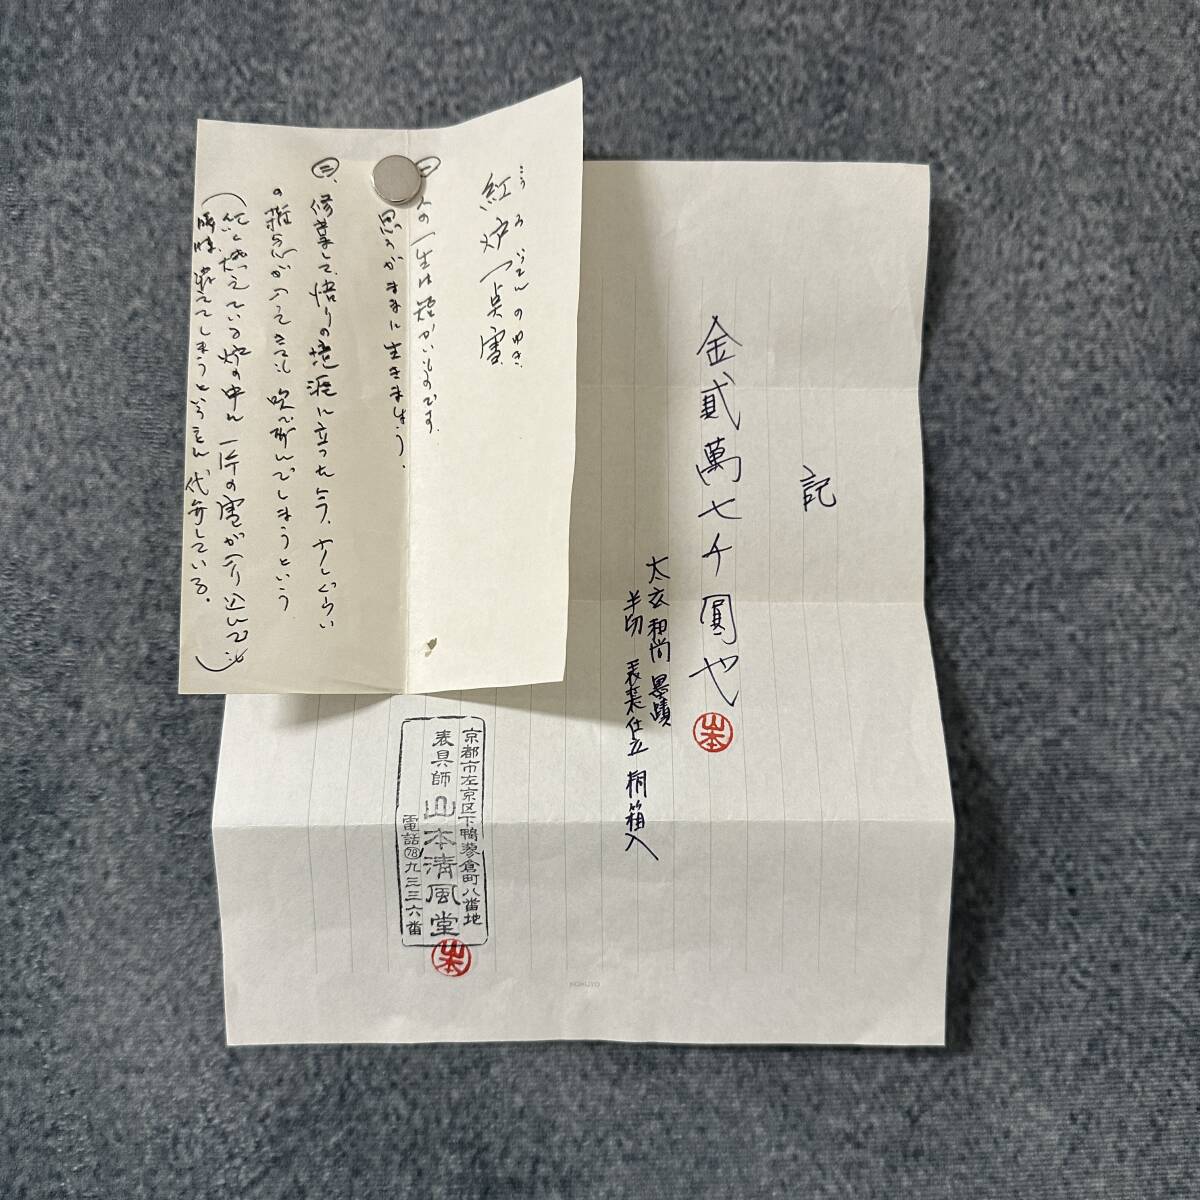 記
金貳萬七千圓也
山本
太玄和尚墨蹟
半切 表装仕立 桐箱入
京都市左京区下鴨蓼倉町八番地
表具師 山本清風堂
電話78九三三六番
山本
KOKUYO
こう ろ いってんのゆき
紅炉一点雪
人の一生は短かいものです。
思うがままに生きましょう。
三、修業して、悟りの境涯に立った今、少しぐらい
の雑念が入ってきても吹飛んでしまうという
(紅く燃えている炉の中に一片の雪が入り込んでも
瞬時、消えてしまうということを代弁している。)